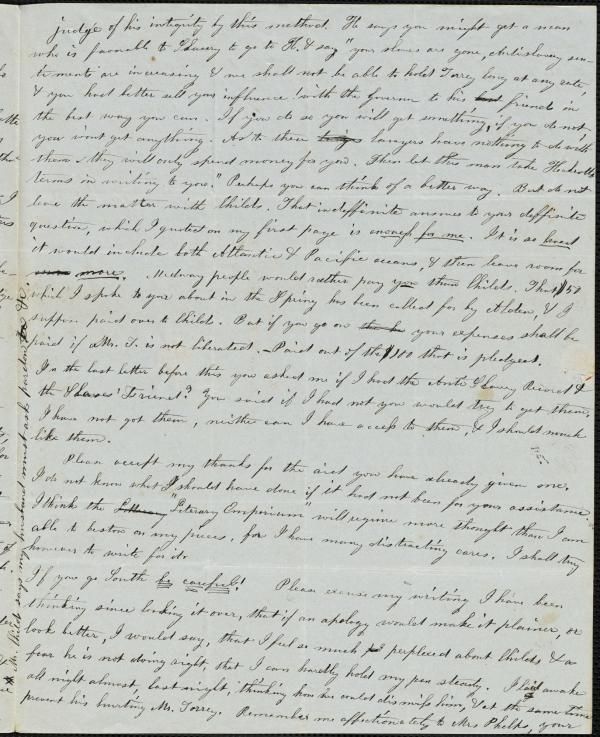 judge of his integrity by this method. He says you might get a man
who is favorable to Slavery to go to H. & say "your slaves are gone, Antislavery sen-
timents are increasing & we shall not be able to hold Torrey long at any rate,
& you had better sell your influence with the Governor to his friends in
the best way you can. If you do so you will get something, if you do not
you wont get anything. As to these lawyers have nothing to do with
them, they will only spend money for you. Then let this man take Heckrotte's
terms in writing to you." Perhaps you can think of a better way. But do not
leave the matter with Childs. That indeffinite answer to your deffinite
question, which I quoted on my first page is enough for me. It is so broad
it would include both Atlantic & Pacific oceans, & then leave room for
more. Medway people would rather pay you than Childs. That $58
which I spoke to you about in the Spring has been called for by Alden, & I
suppose paid over to Childs. But if you go on your expenses shall be
paid if Mr. T. is not liberated. Paid out of the $100 that is pledged.
In the last letter before this you asked me if I had the Anti Slavery Record &
the Slaves' Friend? You said if I had not you would try to get them,
I have not got them, neither can I have access to them, & I should much
like them.
Please accept my thanks for the aid you have already given me.
I do not know what I should have done if it had not been for your assistance.
I think the "Literary Emporium" will require more thought than I am
able to bestow on my pieces, for I have many distracting cares. I shall try
however to write for it.
If you go South be careful! Please excuse my writing I have been
thinking since looking it over, that if an apology would make it plainer, or
look better, I would say, that I feel so much perplexed about Childs, & a
fear he is not doing right, that I can hardly hold my pen steady. I laid awake
all night almost, last night, thinking how we could dismiss him, & at the same time
prevent his hurting Mr. Torrey. Remember me affectionately to Mrs Phelps, your
Mr. Childs says my husband must ask pardon &c.